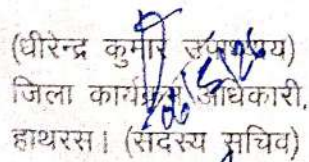 (धीरेन्द्र कुमार उपाध्याय)
जिला कार्यक्रम अधिकारी,
हाथरस। (सदस्य सचिव)